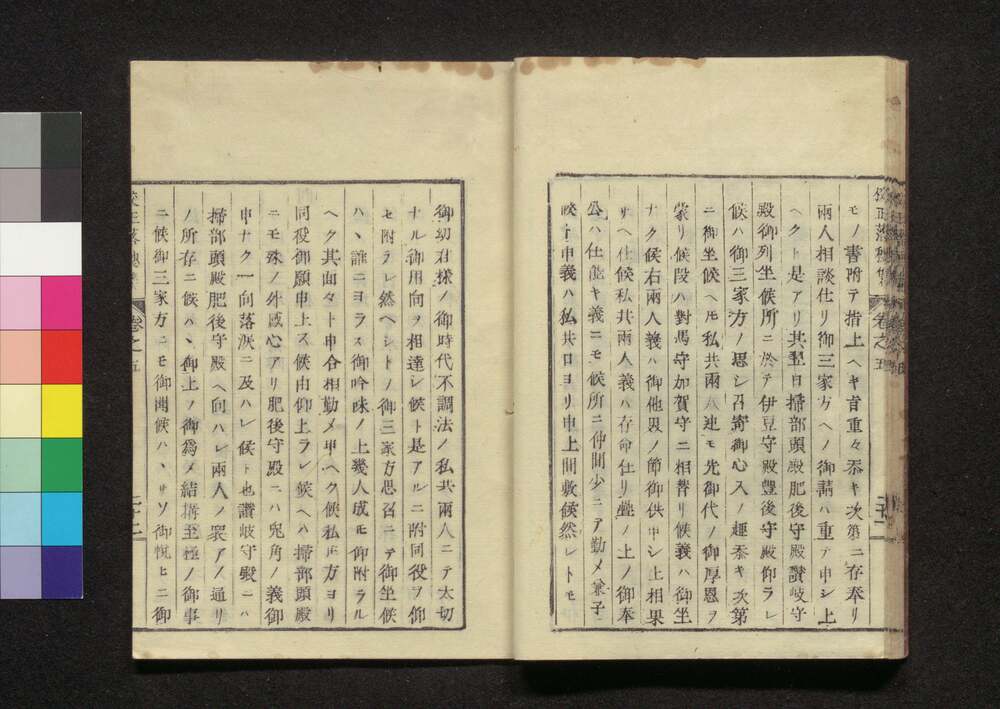 モノ書附テ指上ヘキ旨重々忝キ次第ニ存奉リ
兩人相談仕リ御三家方ヘノ御請ハ重テ申シ上
ヘクト是アリ其翌日掃部頭殿肥後守殿讃岐守
殿御列坐候所ニ於テ伊豆守殿豐後守殿仰ラレ
候ハ御三家方ノ思シ召寄御心入ノ趣忝キ次第
ニ御坐候ヘ𪜈私共兩人連モ先御代ノ御厚恩ヲ
蒙リ候段ハ對馬守加賀守ニ相替リ候義ハ御坐
ナク候右兩人義ハ御他界ノ節御供申シ上相果
サヘ仕候私共兩人義ハ存命仕リ ノ上ノ御奉
公ハ仕 キ義ニモ候所ニ仲間少ニテ勤メ兼子
申義ハ私共口ヨリ申上間敷候然レトモ
御幼君樣ノ御時代不調法ノ私共兩人ニテ大切
ナル御用向ヲ相達シ候ト是アルニ附同役ヲ仰
セ附ラレ然ヘシトノ御三家方思召ニテ御坐候
ハヽ誰ニヨラス御吟味ノ上幾人成𪜈仰附ラル
ヘク其面々ト申合相勤メ申ヘク候私𪜈方ヨリ
同役御願申上ス候由仰上ラレ候ヘハ掃部頭殿
ニモ殊ノ外感心アリ肥後守殿ニハ兎角ノ義御
申ナク一向落淚ニ及ハレ候ト也讃岐守殿ニハ
掃部頭殿肥後守殿ヘ向ハレ兩人ノ衆アノ通リ
ノ所存ニ候ハヽ御上ノ御爲メ結構至極ノ御事
ニ候御三家方ニモ御聞候ハヽサソ御悅ヒニ御
卷之五